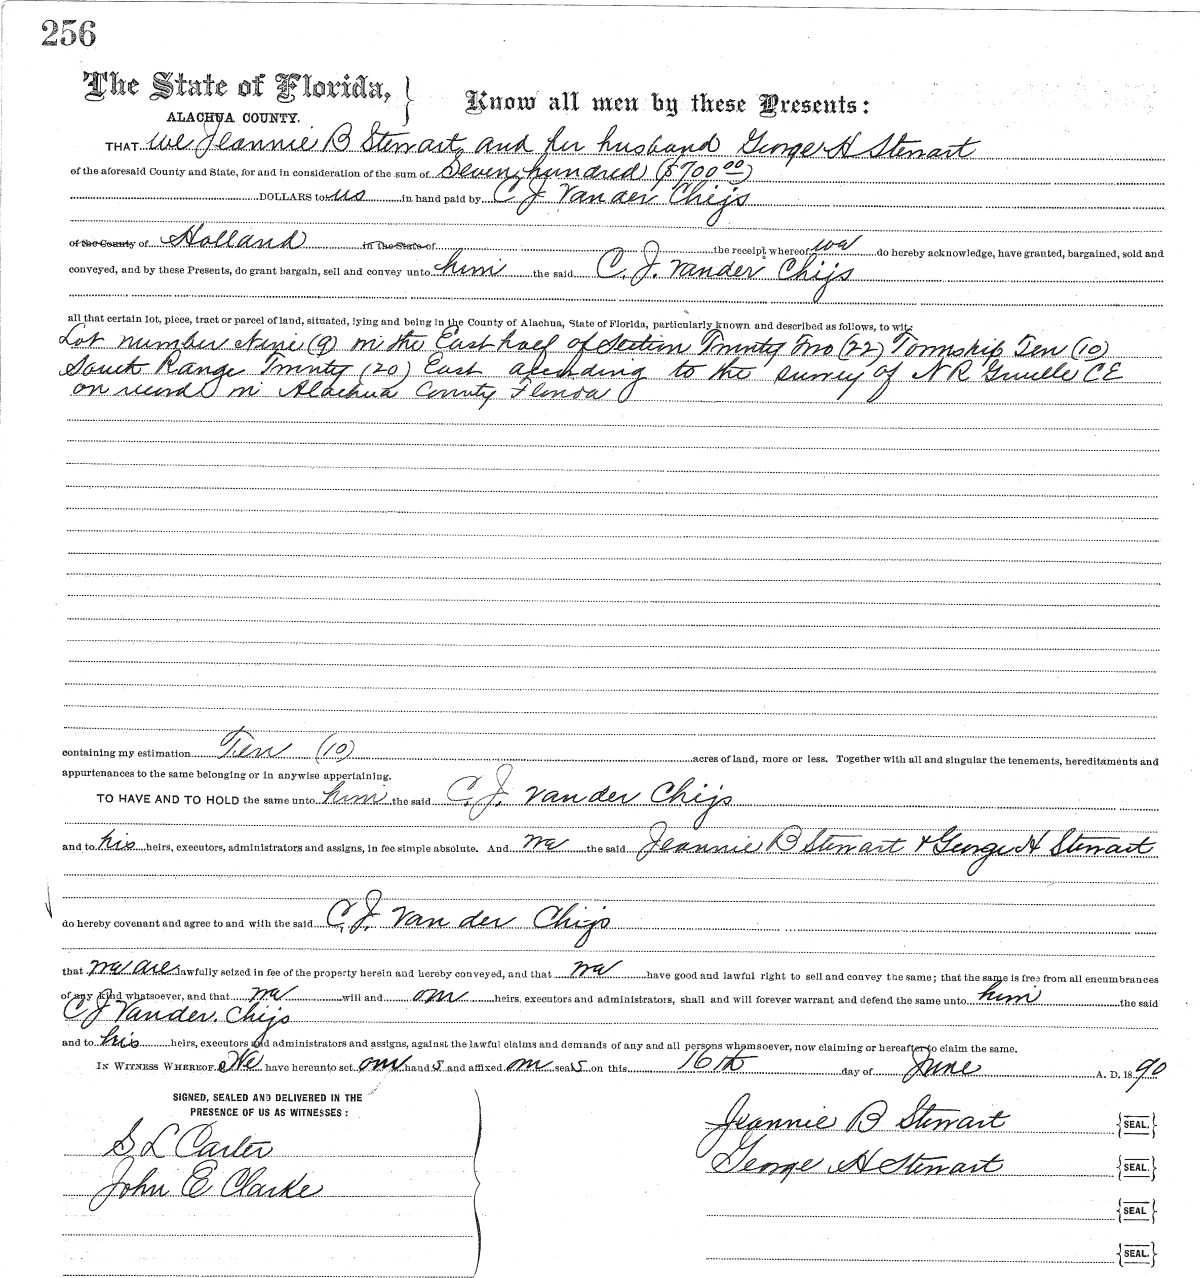 256
The State of Florida, }
ALACHUA COUNTY.
Know all men by these Presents:
THAT we Jeannie B Stewart and her husband George H Stewart
of the aforesaid County and State, for and in consideration of the sum of Seven hundred ($700 00)
DOLLARS to us in hand paid by C J Van der Chijs
of the County of Holland in the State of the receipt whereof we do hereby acknowledge, have granted, bargained, sold and
conveyed, and by these Presents, do grant bargain, sell and convey unto him the said C. J. Vander Chijs
all that certain lot, piece, tract or parcel of land, situated, lying and being in the County of Alachua, State of Florida, particularly known and described as follows, to wit:
Lot number Nine (9) in the East half of Section Twenty Two (22) Township Ten (10)
South Range Twenty (20) East according to the survey of N R CE
on record in Alachua County Florida
containing my estimation Ten (10) acres of land, more or less. Together with all and singular the tenements, hereditaments and
appurtenances to the same belonging or in anywise appertaining.
TO HAVE AND TO HOLD the same unto him the said C. J. Van der Chijs
and to his heirs, executors, administrators and assigns, in fee simple absolute. And we the said Jeannie B Stewart & George H Stewart
do hereby covenant and agree to and with the said C. J. Van der Chijs
that we are lawfully seized in fee of the property herein and hereby conveyed, and that we have good and lawful right to sell and convey the same; that the same is free from all encumbrances
of any kind whatsoever, and that we will and our heirs, executors and administrators, shall and will forever warrant and defend the same unto him the said
C J Vander. Chijs
and to his heirs, executors and administrators and assigns, against the lawful claims and demands of any and all persons whomsoever, now claiming or hereafter to claim the same.
IN WITNESS WHEREOF, We have hereunto set our hands and affixed our seals on this 16th day of June A. D. 1890
SIGNED, SEALED AND DELIVERED IN THE
PRESENCE OF US AS WITNESSES:
S L Carter
John E Clarke
Jeannie B Stewart {SEAL.}
George H Stewart {SEAL.}
{SEAL}
{SEAL.}